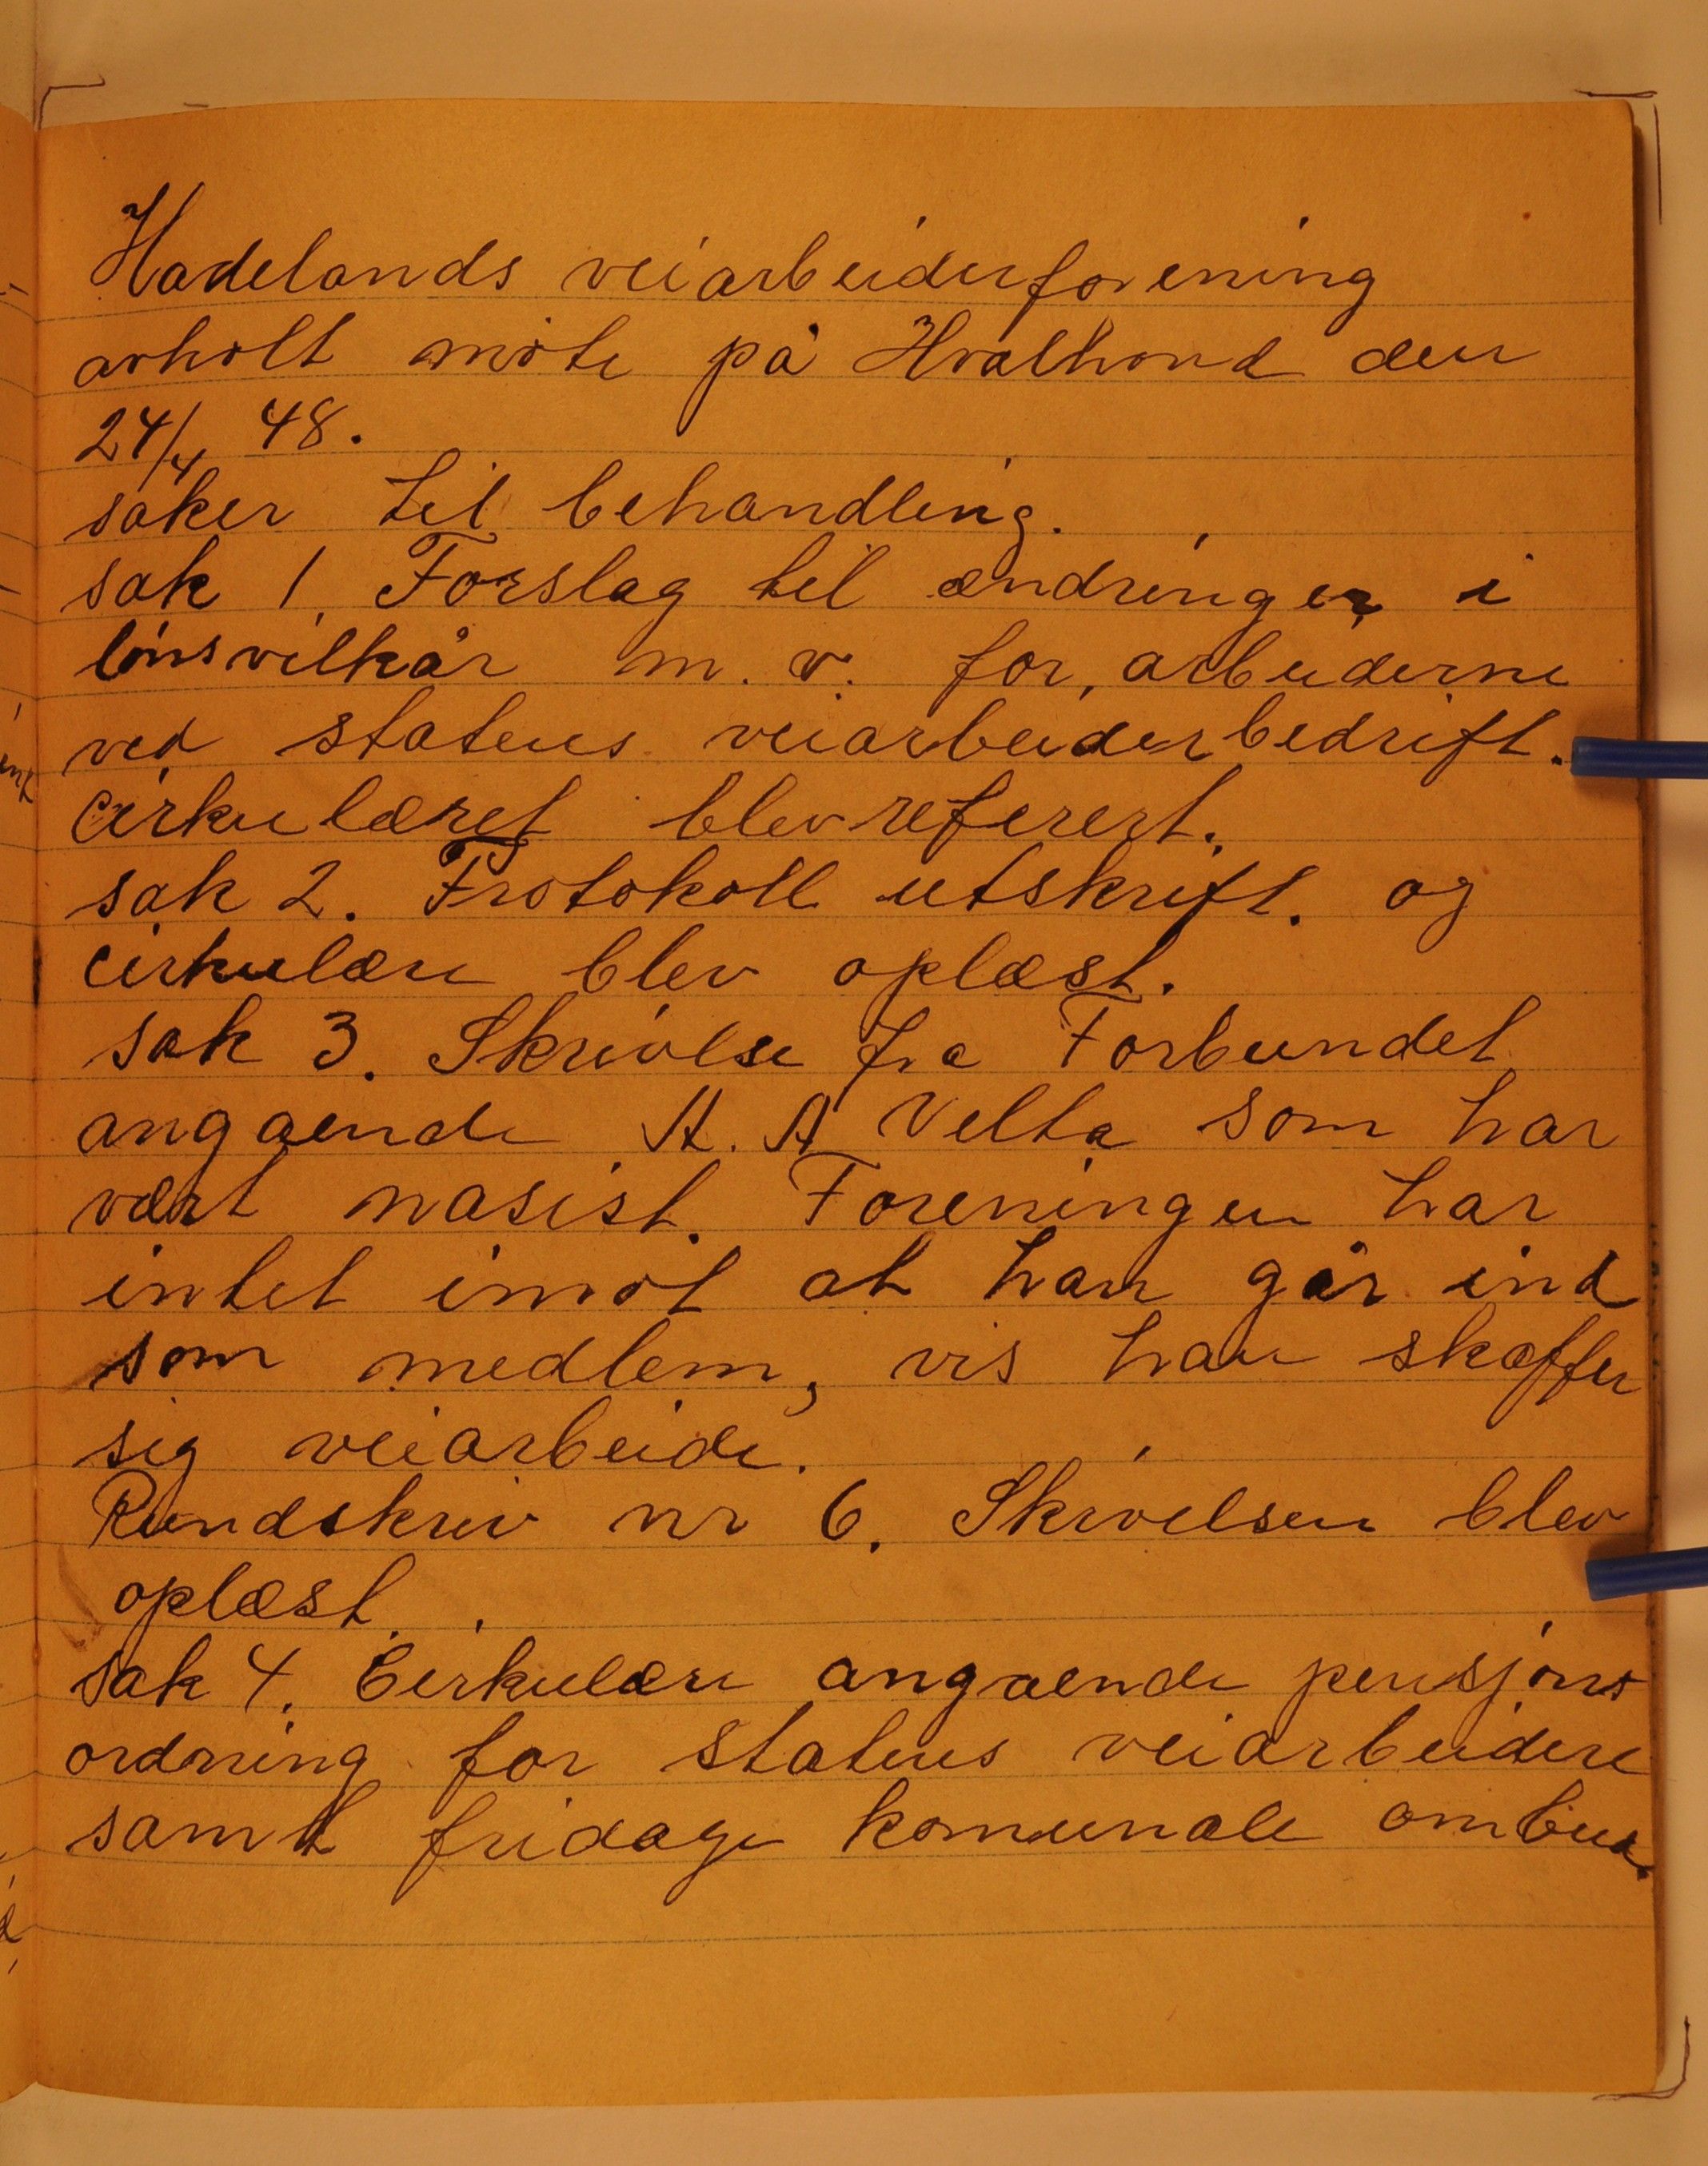 Hadelands veiarbeiderforening
avholt møte på Hvalhovd den
24/4 48.
saker til behandling.
sak 1. Forslag til ændringer i
lønsvilkår m. v. for arbeiderne
ved statens veiarbeiderbedrift.
Cirkulæret blev referert.
sak 2. Protokoll utskrift. og
Cirkulære blev oplæst.
sak 3. Skrivelse fra Forbundet
angaende A. A Velta som har
vært nasist. Foreningen har
intet imot at han går ind
som medlem, vis han skaffer
sig veiarbeide.
Rundskriv nr 6. Skrivelsen blev
oplæst.
sak 4. Cirkulære angaende pensjons
ordning for statens veiarbeidere
samt fridage komunale ombud.